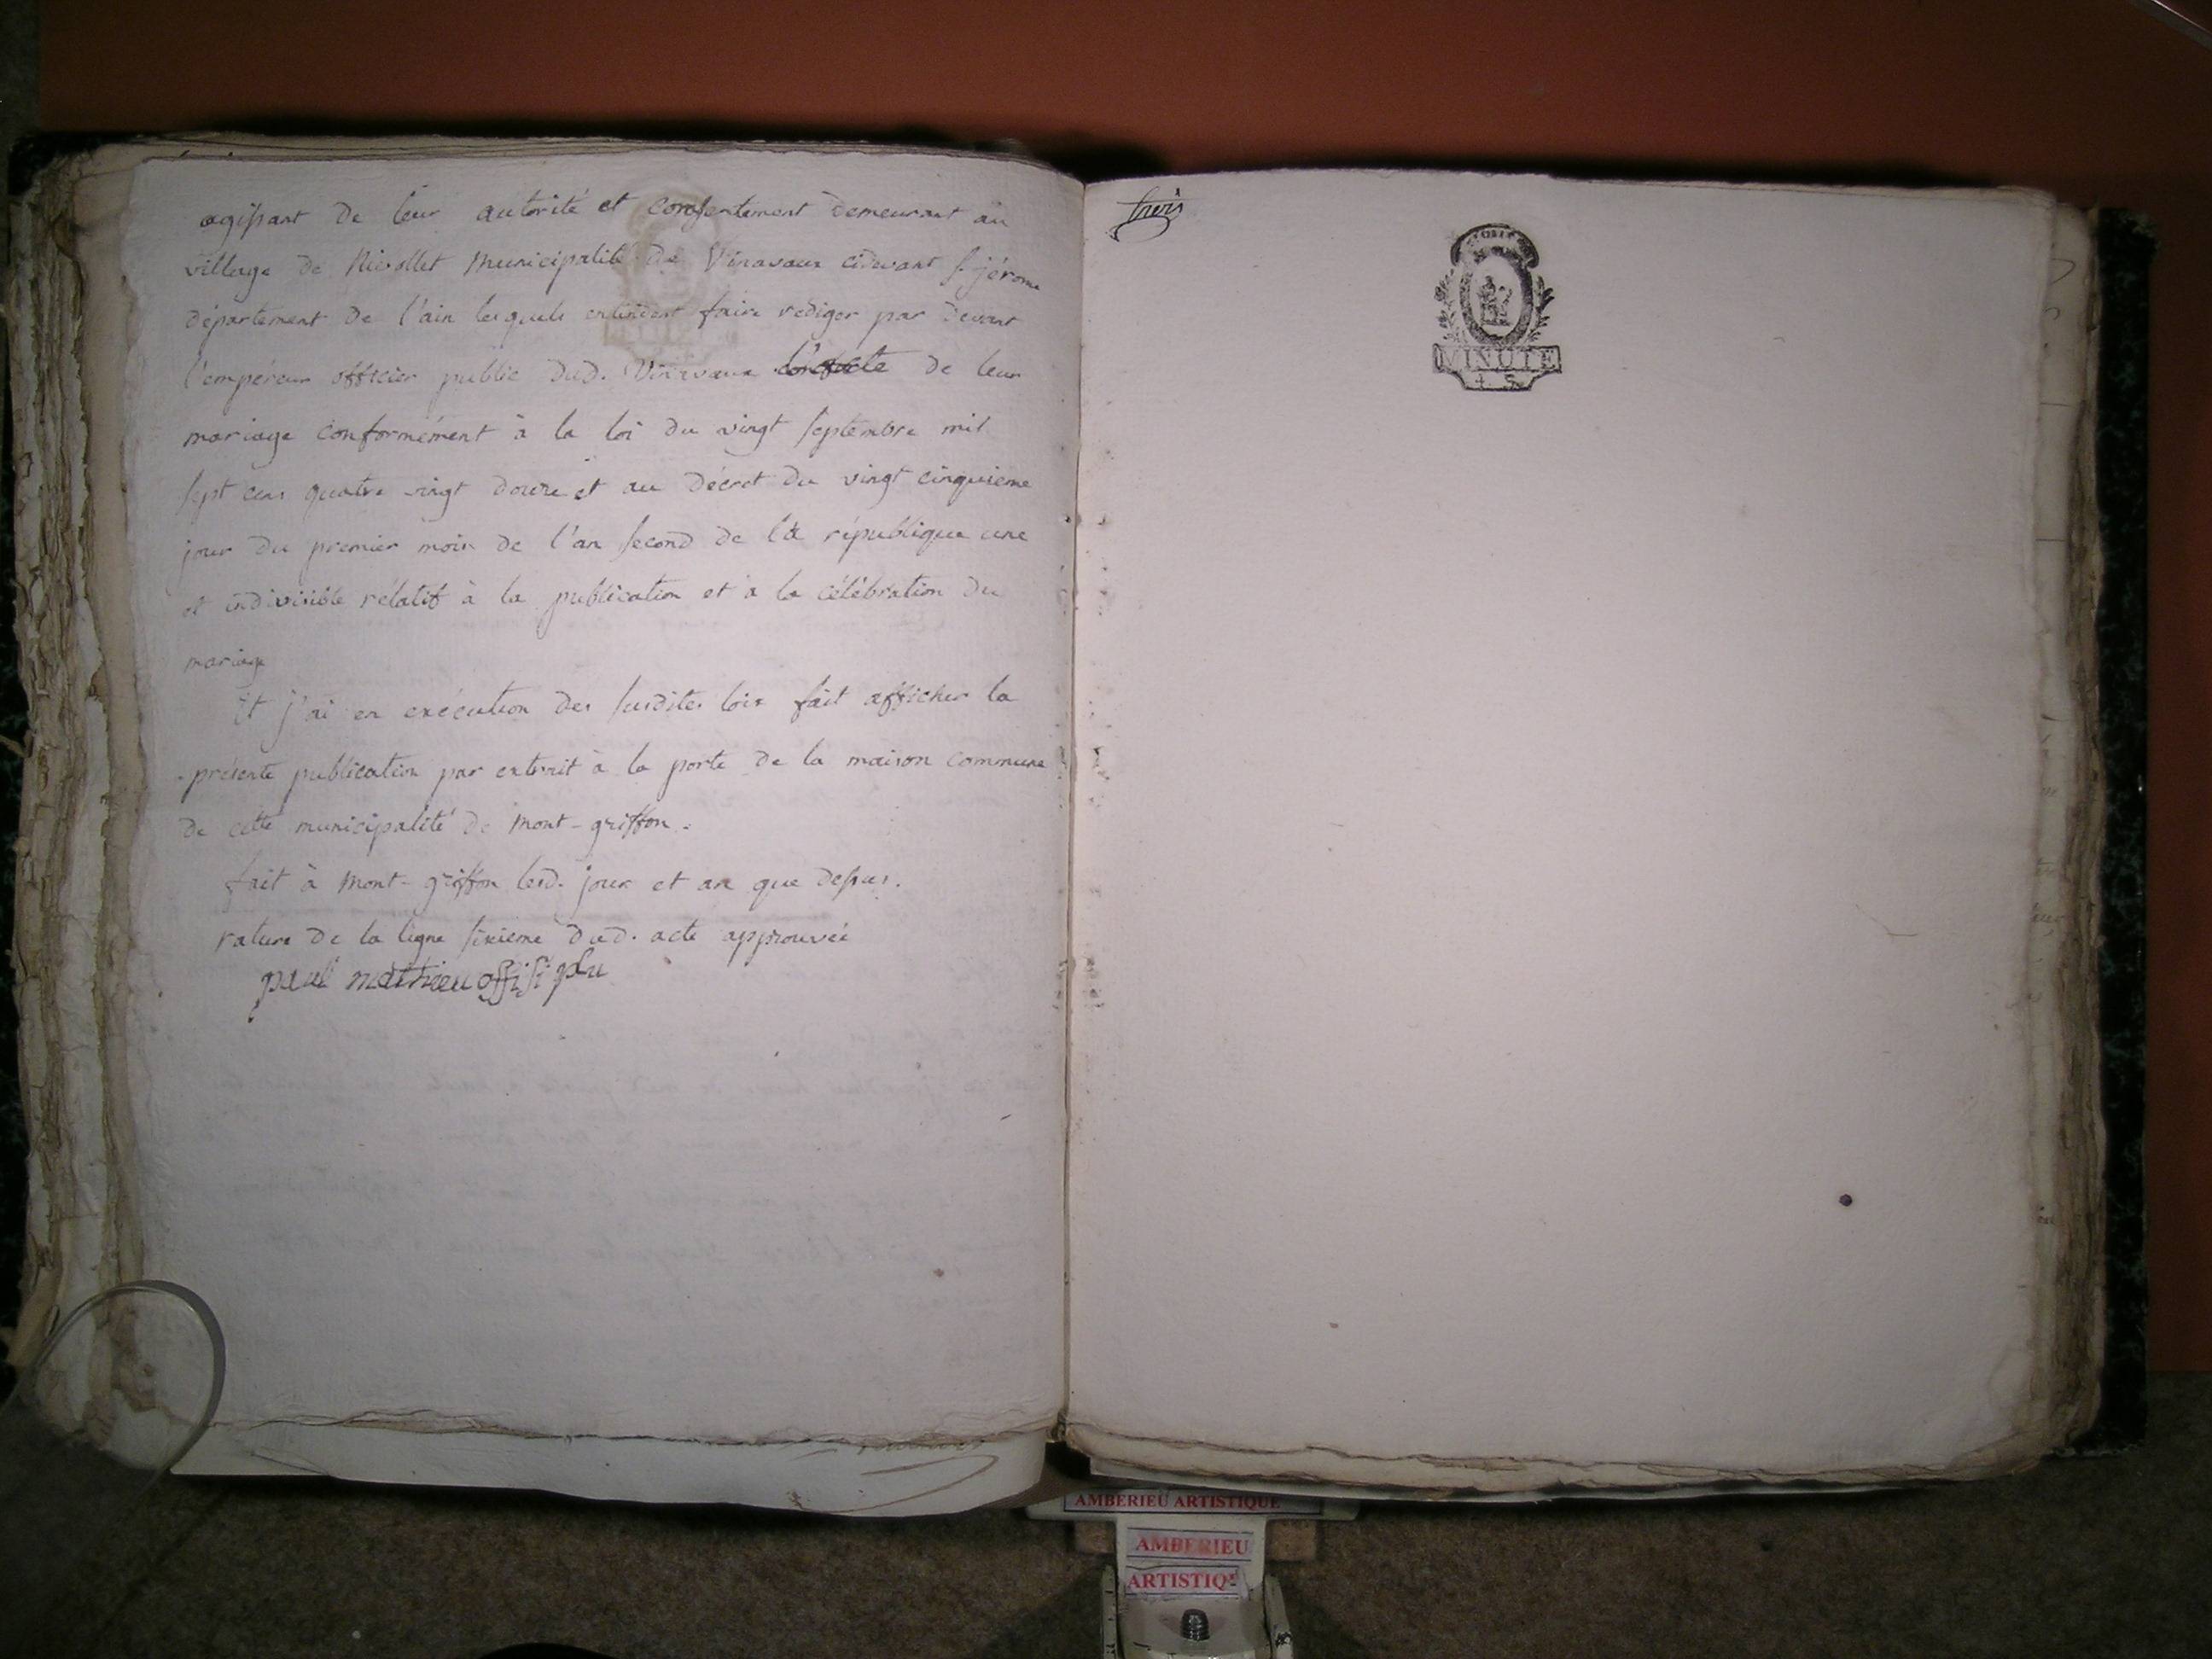 agissant de leur autorité et consentement demeurant au
village de Nivollet municipalité de Vinavaux cidevant s. jérome
département de l'ain lesquels entendent faire rediger par devant
l'empéreur officier public dud. Vinavaux l'acte de leur
mariage conformément à la loi du vingt septembre mil
sept cens quatre vingt douze et au décret du vingt cinquieme
jour du premier mois de l'an second de la république une
et indivisible rélatif à la publication et à la célébration du
mariage
Et j'ai en exécution des susdites loix fait afficher la
présente publication par extrait à la porte de la maison commune
de cette municipalité de Mont-griffon.
fait à Mont-griffon lesd. jour et an que dessus.
rature de la ligne sixieme dud. acte approuvée
paul mathieu offisi plu
trois
MINUTE
AMBERIEU ARTISTIQUE
AMBERIEU
ARTISTIQ